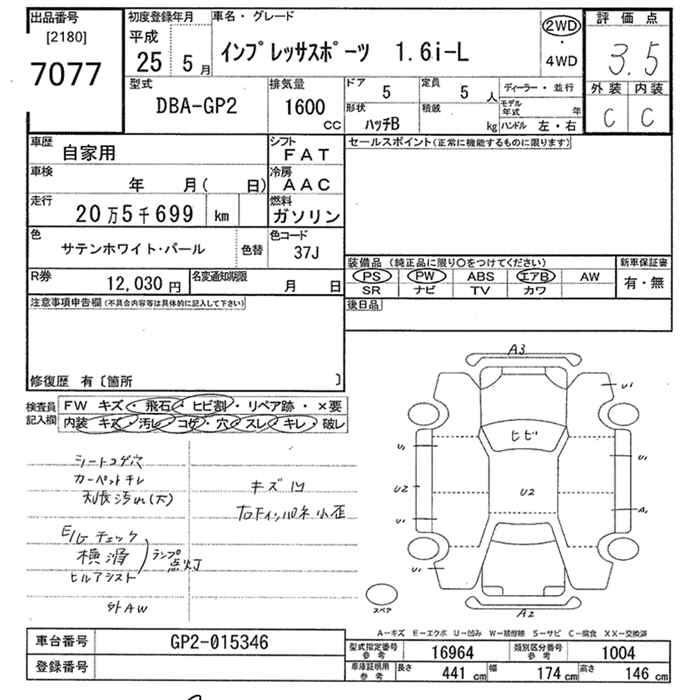 出品番号
[2180]
7077
初度登録年月
平成
25 5月
車名・グレード
インプレッサスポーツ 1.6i-L
2WD
・
4WD
評価点
3.5
外装 内装
C C
型式
DBA-GP2
排気量
1600
CC
ドア
5
定員
5人
ディーラー・並行
形状
ハッチB
積載
kg
モデル年式 年
ハンドル 左・右
車歴
自家用
シフト
FAT
車検
年 月( 日)
冷房
AAC
走行
20万5千699 km
燃料
ガソリン
色
サテンホワイト・パール
色替
色コード
37J
R券
12,030円
名変通知期限
月 日
セールスポイント(正常に機能するものに限ります)
装備品 (純正品に限り○をつけてください)
PS PW ABS エアB AW
SR ナビ TV カワ
新車保証書
有・無
後日品
注意事項申告欄(不具合内容等は具体的に記入して下さい)
修復歴 有〔箇所 〕
検査員記入欄
FW キズ・飛石・ヒビ割・リペア跡・×要
内装 キズ・汚レ・コゲ・穴・スレ・キレ・破レ
シートコゲ穴
カーペットキレ
E/Gチェック
横滑
ヒルアシスト
ランプ点灯
外AW
キズ凹
A3
U1
ヒビ
U1
U1
U2
U2
U1
A1
U1
A2
スペア
A-キズ E-エクボ U-凹み W-補修跡 S-サビ C-腐食 XX-交換済
車台番号
GP2-015346
登録番号
型式指定番号 参考
16964
類別区分番号 参考
1004
車庫証明用 参考
長さ 441cm 幅 174cm 高さ 146cm